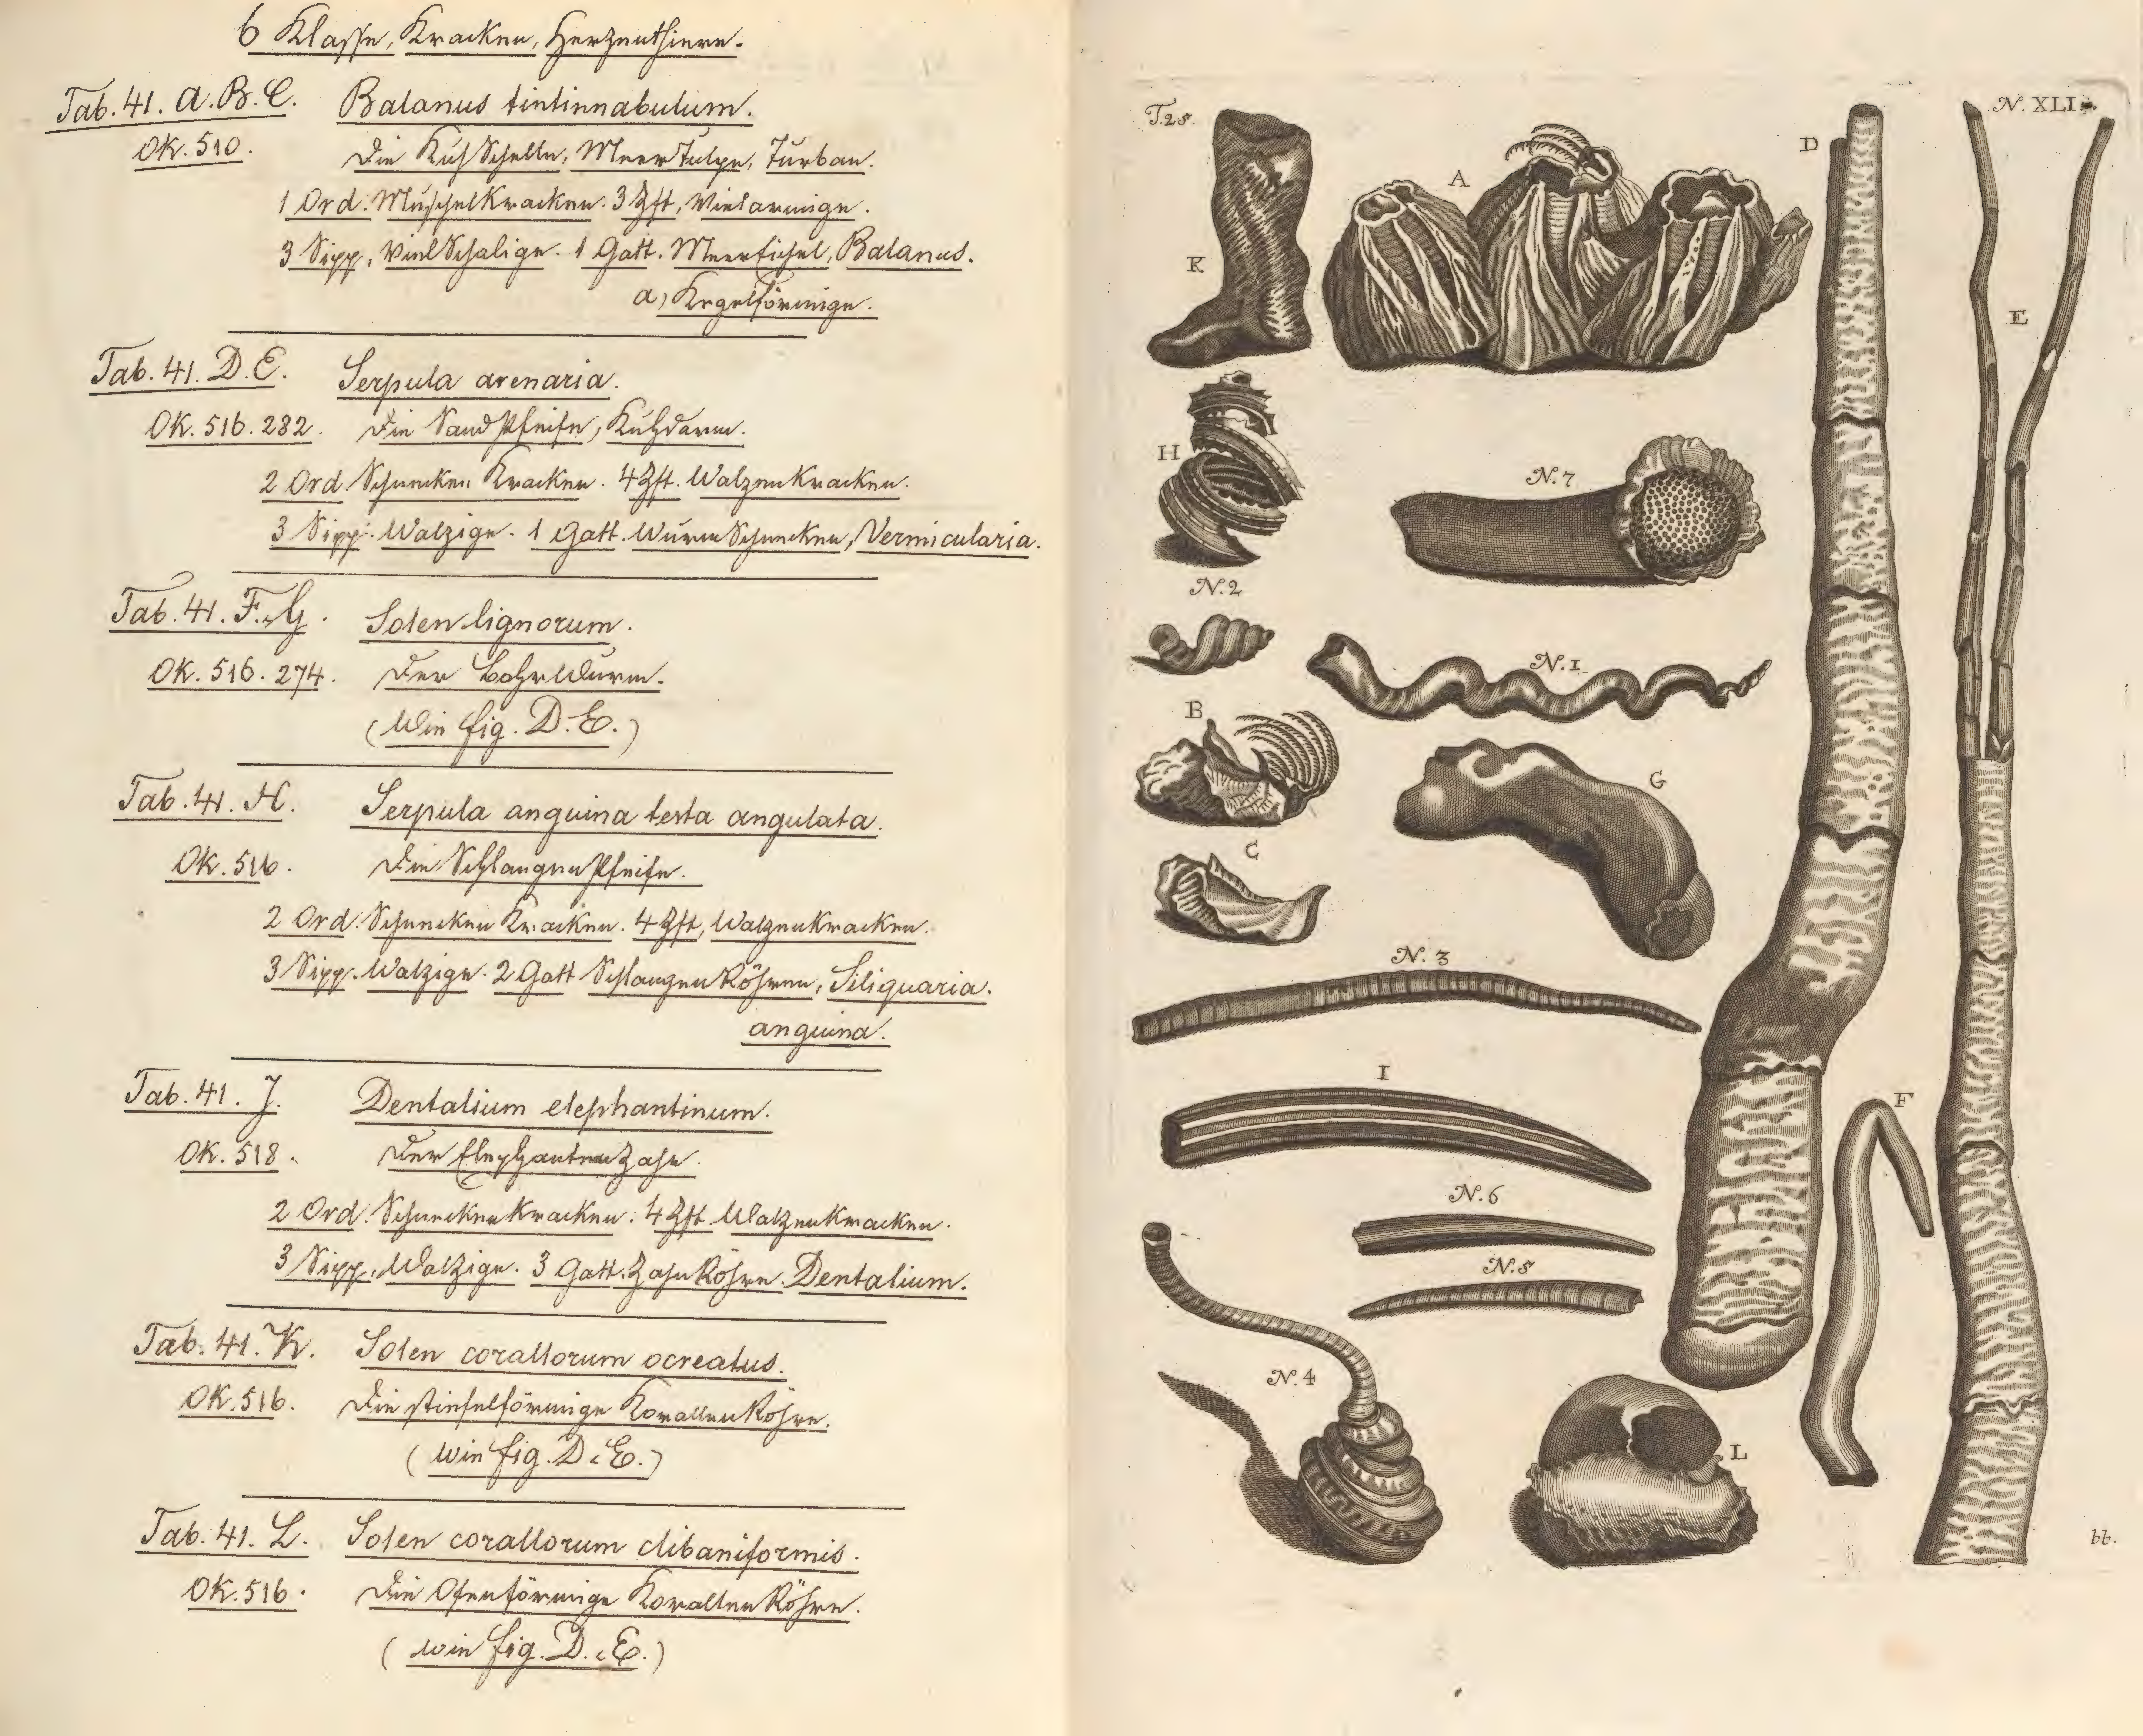 6 Klasse, Kracken, Herzenthiere.
Tab. 41. A. B. C. Balanus tintinnabulum.
Ok. 510. Die KuhSchelle, MeerTulpe, Turban.
1 Ord. MuschelKracken. 3 Zft, Vielarmige.
3 Sipp, VielSchalige. 1 Gatt. MeerEichel, Balanus.
a, Kegelförmige.
Tab. 41. D. E. Serpula arenaria.
Ok. 516. 282. Die SandPfeife, Kuhdarm.
2 Ord Schnecken Kracken. 4 Zft. WalzenKracken.
3 Sipp. Walzige. 1 Gatt. WurmSchnecken, Vermicularia.
Tab. 41. F. G. Solen lignorum.
Ok. 516. 274. Der BohrWurm.
(Wie fig. D. E.)
Tab. 41. H. Serpula anguina testa angulata.
Ok. 516. Die SchlangenPfeife.
2 Ord. Schnecken Kracken. 4 Zft, WalzenKracken.
3 Sipp. Walzige. 2 Gatt SchlangenRöhren, Siliquaria.
anguina.
Tab. 41. J. Dentalium elephantinum.
Ok. 518. Der ElephantenZahn.
2 Ord. SchneckenKracken. 4 Zft WalzenKracken.
3 Sipp, Walzige. 3 Gatt. ZahnRöhre. Dentalium.
Tab. 41. K. Solen corallorum ocreatus.
Ok. 516. Die stiefelförmige KorallenRöhre.
(wie fig. D. E.)
Tab. 41. L. Solen corallorum clibaniformis.
Ok. 516. Die Ofenförmige KorallenRöhre.
(wie fig. D. E.)
T. 28.
N. XLI.
D
A
K
E
H
N. 7
N. 2
N. 1
B
G
C
N. 3
I
F
N. 6
N. 5
N. 4
L
bb.